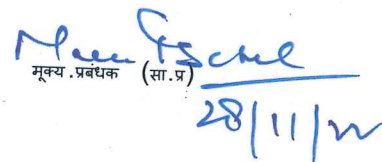 मूक्य .प्रबंधक (सा.प्र)
28/11/22